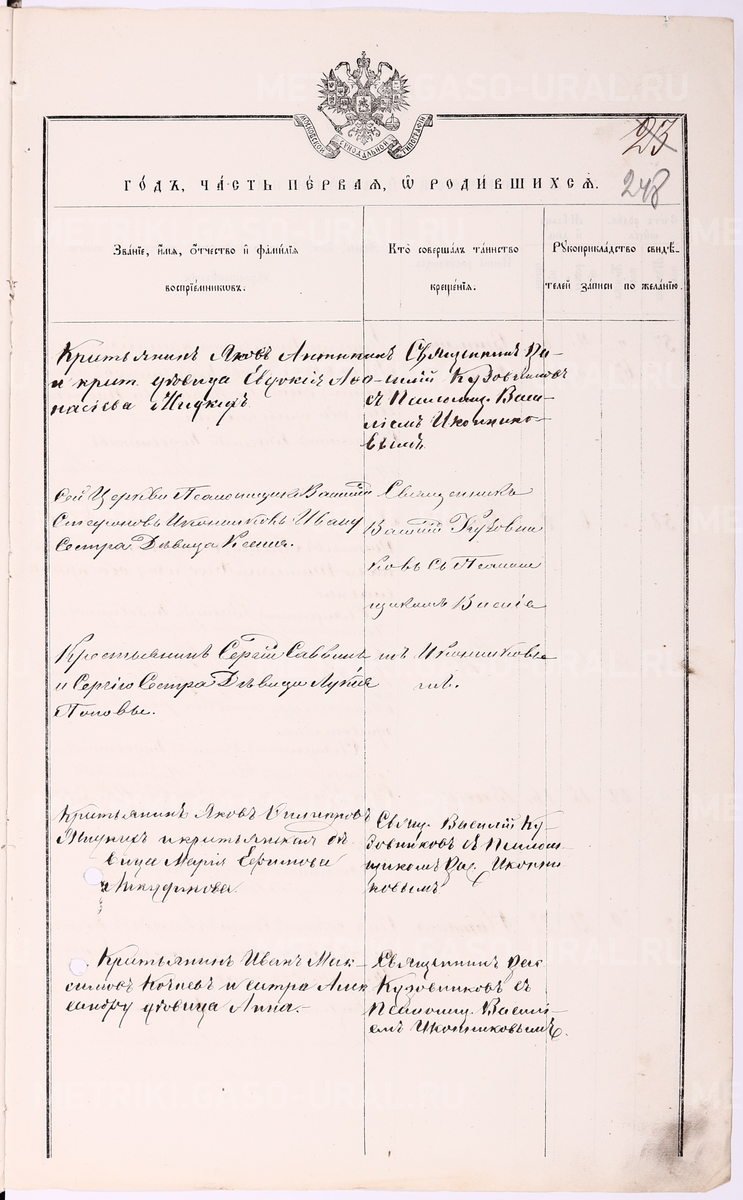 МОСКОВСКОЙ СѴНОДАЛЬНОЙ ТИПОГРАФІИ
23
248
ГО́ДЪ, ЧА́СТЬ ПЕ́РВАЯ, Ѡ҆ РОДИ́ВШИХСѦ.
Зва́нїе, и҆́мя, ѻ҆́тчество и҆ фами́лїя
воспрїе́мникѡвъ.
Кто̀ соверша́лъ та́инство
креще́нїя.
Рꙋкоприкла́дство свидѣ́-
телей за́писи по жела́нїю.
Крестьянинъ Яковъ
и крест. дѣвица Евдокія Аѳа-
насіева
Священникъ Ва-
силій Кудовниковъ
съ Псаломщ. Васи-
ліемъ Иконнико-
вымъ
Сей Церкви Псаломщикъ Василій
Стефановъ Иконниковъ Ивану
Сестра Дѣвица Ксенія.
Священникъ
Василій Кудовни
ковъ съ Псалом
щикомъ Василіе
Крестьянинъ Сергій Саввинъ
и Сергію Сестра Дѣвица Лукія
Поповы.
мъ Иконниковы
мъ.
Крестьянинъ Яковъ
и крестьянская дѣ
вица Марія Ефимова
Анкудинова
Свящ. Василій Ку-
довниковъ съ Псалом-
щикомъ Вас. Иконни
ковымъ
Крестьянинъ Иванъ Мак-
симовъ и сестра Алек
сандру дѣвица Анна.
Священникъ Вас.
Кудовниковъ съ
Псаломщ. Василі-
емъ Иконниковымъ.
METRIKI.GASO-URAL.RU